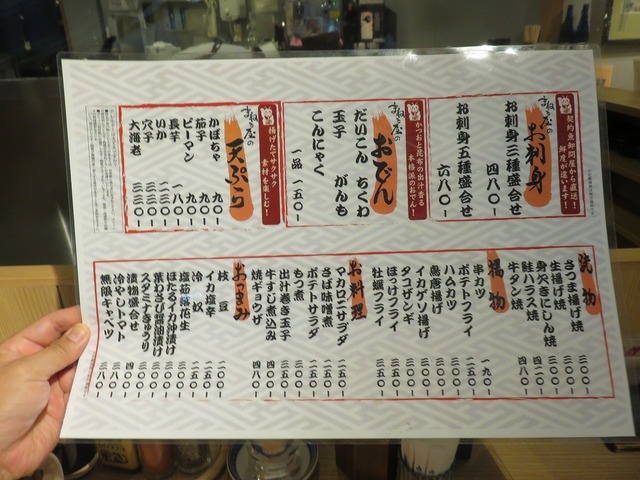 契約魚卸問屋から直送!
鮮度が違います!
お刺身
お刺身三種盛合せ 四八〇-
お刺身五種盛合せ 六八〇-
かつおと昆布の出汁香る
本格派のおでん!
おでん
だいこん ちくわ
玉子 がんも
こんにゃく
一品 一五〇-
揚げたてサクサク
素材を楽しむ!
天ぷら
かぼちゃ 九〇-
茄子 九〇-
ピーマン 九〇-
長芋 一八〇-
いか
穴子
大海老
焼物
さつま揚げ焼 三〇〇-
生揚げ焼 三〇〇-
身欠きにしん焼
鮭ハラス焼 四二〇-
牛タン焼 四八〇-
揚物
串カツ 一九〇-
ポテトフライ 二五〇-
ハムカツ 三〇〇-
鳥唐揚げ 三〇〇-
イカゲソ揚げ 三〇〇-
タコザンギ
ほっけフライ
牡蠣フライ
お料理
マカロニサラダ 二五〇-
さば味噌煮 二五〇-
ポテトサラダ 二五〇-
もつ煮
出汁巻き玉子
牛すじ煮込み
焼ギョウザ 四八〇-
おつまみ
枝豆 二〇〇-
イカ塩辛 二五〇-
冷奴 二五〇-
塩茹落花生
ほたるイカ沖漬け 三〇〇-
葉わさび醤油漬け 三〇〇-
スタミナきゅうり 三〇〇-
漬物盛合せ
冷やしトマト 三八〇-
無限キャベツ 三八〇-